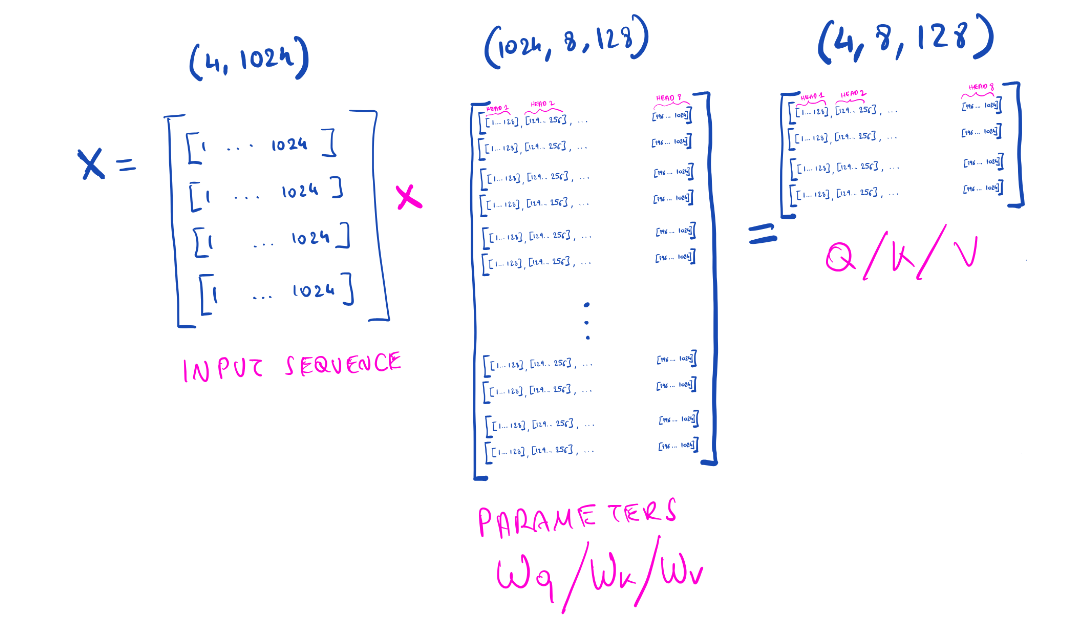 (4, 1024)
(1024, 8, 128)
(4, 8, 128)
X =
[1 ... 1024]
[1 ... 1024]
[1 ... 1024]
[1 ... 1024]
INPUT SEQUENCE
X
HEAD 1 HEAD 2 HEAD 8
[[1...128], [129... 256], ... [896... 1024]]
[[1...128], [129... 256], ... [896... 1024]]
[[1...128], [129... 256], ... [896... 1024]]
[[1...128], [129... 256], ... [896... 1024]]
[[1...128], [129... 256], ... [896... 1024]]
[[1...128], [129... 256], ... [896... 1024]]
⋮
[[1...128], [129... 256], ... [896... 1024]]
[[1...128], [129... 256], ... [896... 1024]]
[[1...128], [129... 256], ... [896... 1024]]
[[1...128], [129... 256], ... [896... 1024]]
PARAMETERS
Wq/Wk/Wv
=
HEAD 1 HEAD 2 HEAD 8
[[1...128], [129... 256], ... [896... 1024]]
[[1...128], [129... 256], ... [896... 1024]]
[[1...128], [129... 256], ... [896... 1024]]
[[1...128], [129... 256], ... [896... 1024]]
Q/K/V